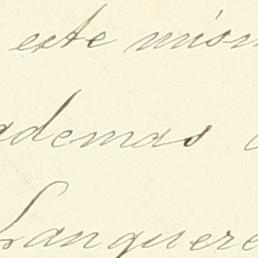 este mism
ademas
Languere